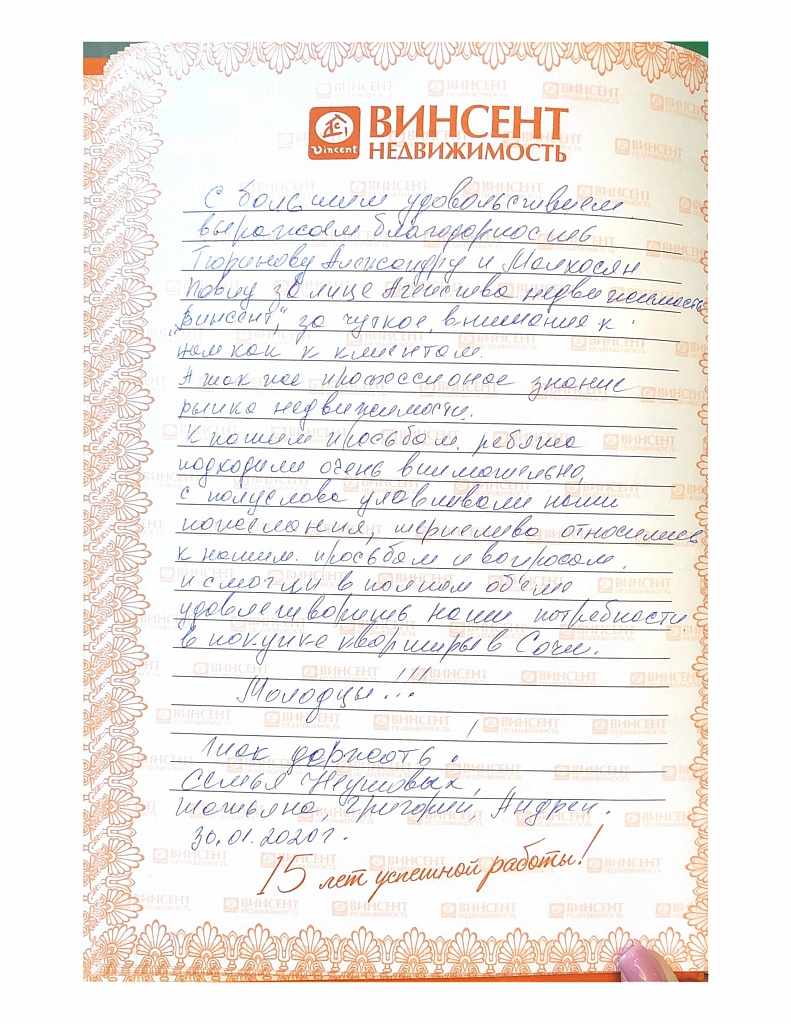 ВИНСЕНТ
НЕДВИЖИМОСТЬ
Vincent
С большим удовольствием
выражаем благодарность
Тюринову Александру и Малхасян
Павлу в лице Агенства недвижимость
"Винсент", за чуткое, внимания к
нам как к клиентам.
А так же професcионое знание
рынка недвижимости.
К нашим просьбам ребята
подходили очень внимательно,
с полуслова улавливали наши
пожелания, терпеливо относились
к нашим просьбам и вопросам,
и смогли в полном объёме
удовлетворить наши потребности
в покупке квартиры в Сочи.
Молодцы!!!
Так держать!
Семья
Татьяна, Григорий, Андрей.
30.01.2020г.
15 лет успешной работы!